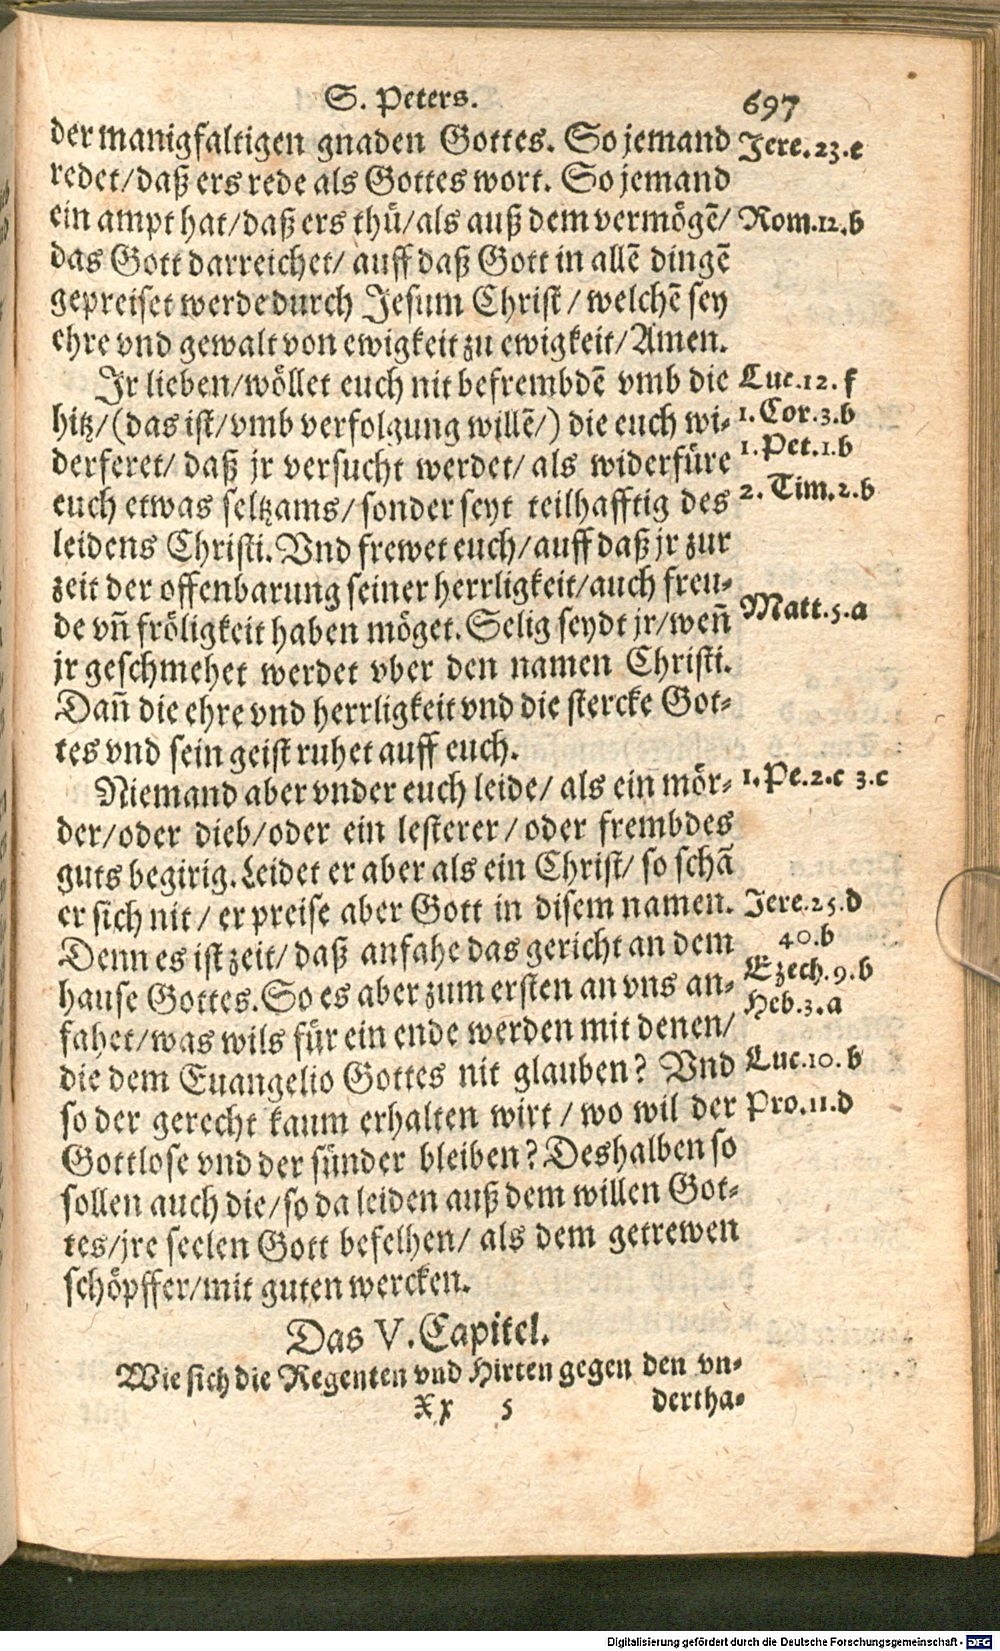 S. Peters. 697
der manigfaltigen gnaden Gottes. So jemand Jere.23.e
redet/daß ers rede als Gottes wort. So jemand
ein ampt hat/daß ers thuͤ/als auß dem vermögẽ/ Rom.12.b
das Gott darreichet/ auff daß Gott in allẽ dingẽ
gepreiset werde durch Jesum Christ/ welchẽ sey
ehre vnd gewalt von ewigkeit zu ewigkeit/Amen.
Jr lieben/wöllet euch nit befrembdẽ vmb die Luc.12.f
hitz/(das ist/vmb verfolgung willẽ/) die euch wi- 1.Cor.3.b
derferet/ daß jr versucht werdet/ als widerfüre 1.Pet.1.b
euch etwas seltzams/sonder seyt teilhafftig des 2.Tim.2.b
leidens Christi. Vnd frewet euch/auff daß jr zur
zeit der offenbarung seiner herrligkeit/auch freu-
de vñ fröligkeit haben möget. Selig seydt jr/weñ Matt.5.a
jr geschmehet werdet vber den namen Christi.
Dañ die ehre vnd herrligkeit vnd die stercke Got-
tes vnd sein geist ruhet auff euch.
Niemand aber vnder euch leide/ als ein mör- 1.Pe.2.c 3.c
der/oder dieb/oder ein lesterer/oder frembdes
guts begirig. Leidet er aber als ein Christ/ so schã
er sich nit/ er preise aber Gott in disem namen. Jere.25.d
Denn es ist zeit/ daß anfahe das gericht an dem 40.b
hause Gottes. So es aber zum ersten an vns an- Ezech.9.b
fahet/was wils für ein ende werden mit denen/ Heb.3.a
die dem Euangelio Gottes nit glauben? Vnd Luc.10.b
so der gerecht kaum erhalten wirt/ wo wil der Pro.11.d
Gottlose vnd der sünder bleiben? Deshalben so
sollen auch die/so da leiden auß dem willen Got-
tes/jre seelen Gott befelhen/ als dem getrewen
schöpffer/mit guten wercken.
Das V. Capitel.
Wie sich die Regenten vnd Hirten gegen den vn-
Xx 5 dertha-
Digitalisierung gefördert durch die Deutsche Forschungsgemeinschaft - DFG